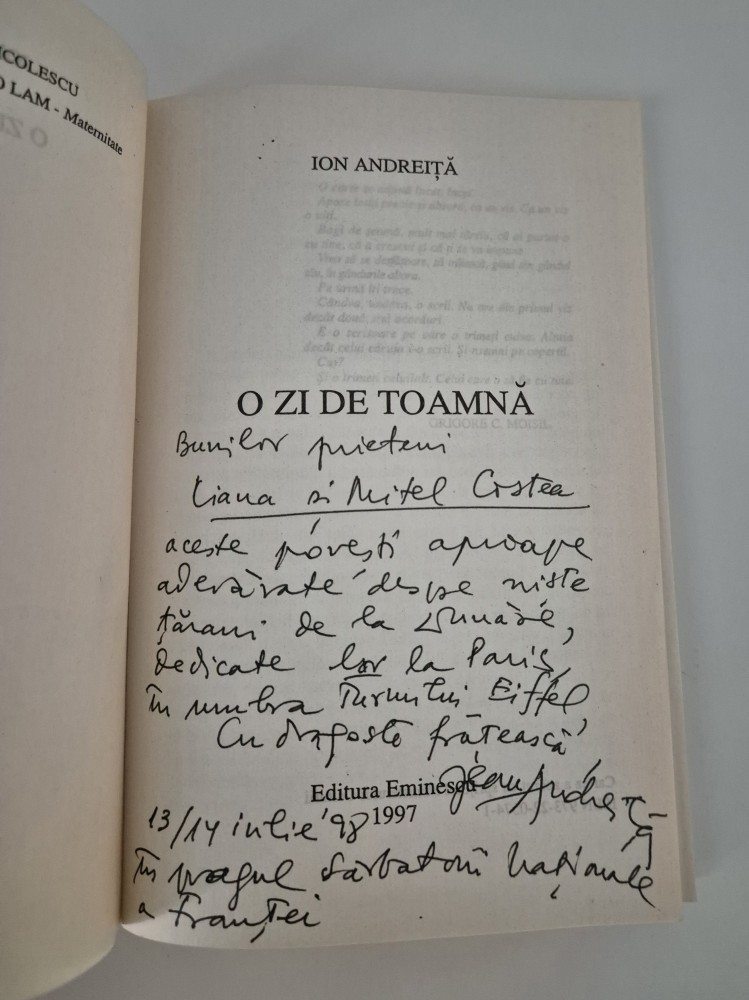 ICOLESCU
O LAM - Maternitate
ION ANDREIȚĂ
O ZI DE TOAMNĂ
GRIGORE C. MOISIL
Bunilor prieteni
Liana si Mitel Costea
aceste povești aproape
adevărate despre niste
țărani de la Dunăre,
dedicate lor la Paris,
în umbra Turnului Eiffel,
Cu dragoste frățească
Editura Eminescu
1997
13/14 iulie '98
În pragul Sărbătorii Naționale
a Franței